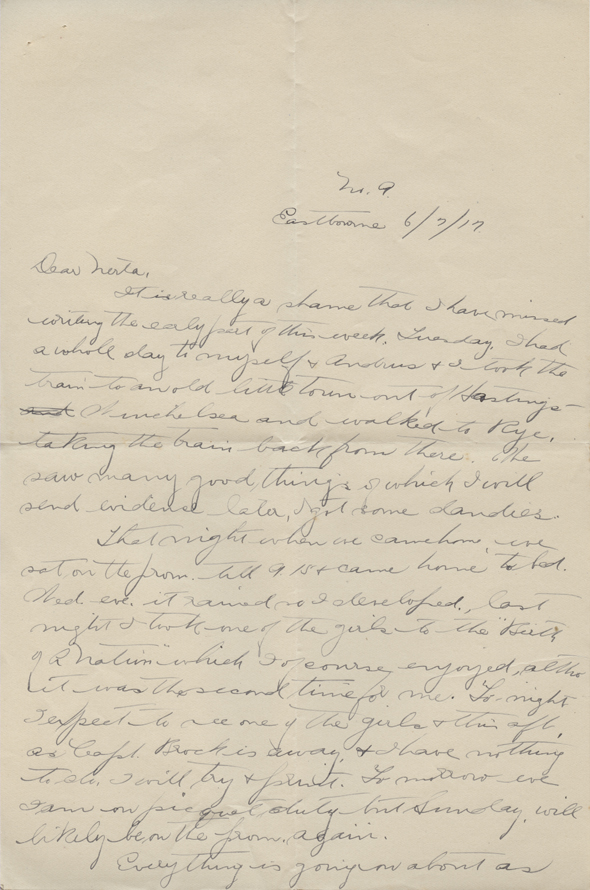 M. A.
Eastbourne 6/7/17
Dear Nerta,
It is really a shame that I have missed
writing the early part of this week. Tuesday, I had
a whole day to myself & Andrus & I took the
train to an old little town out of Hastings –
Winchelsea and walked to Rye,
taking the train back from there. We
saw many good things of which I will
send evidence later, I got some dandies.
That night when we came home we
sat on the prom. till 9.15 & came home to bed.
Wed. eve. it rained so I developed, last
night I took one of the girls to the "Birth
of a Nation" which I of course enjoyed, altho
it was the second time for me. To-night
I expect to see one of the girls & this aft.
as Capt. Brock is away, & I have nothing
to do, I will try & print. To morrow eve
I am on picquet duty but Sunday, will
likely be on the prom. again.
Everything is going on about as